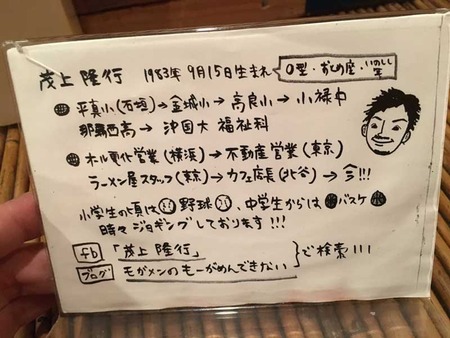 茂上 隆行 1983年 9月15日生まれ O型・おとめ座・いのしし年
平真小(石垣)→金城小→高良小→小禄中
那覇西高→沖国大 福祉科
営業(横浜)→不動産営業(東京)
ラーメン屋スタッフ(東京)→カフェ店長(北谷)→今!!!
小学生の頃は野球、中学生からはバスケ
時々ジョギングしております!!!
fb「茂上 隆行」
ブログ モがメンのもーがめんできない
で検索!!!